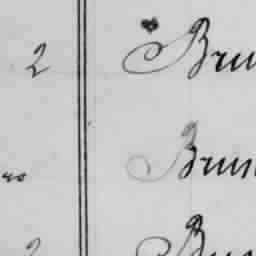 2 Bru
no Brun
2 Brun